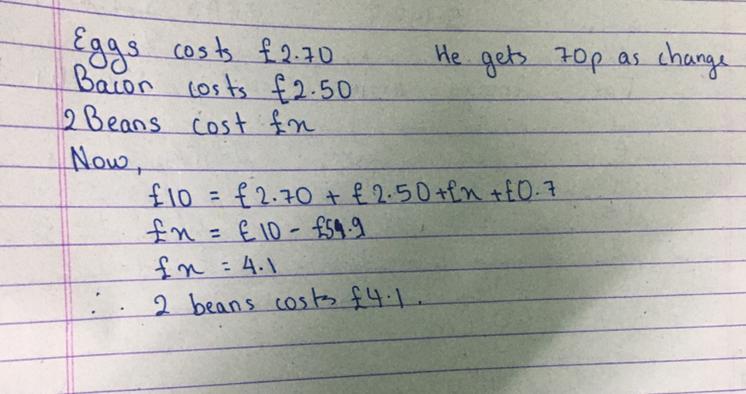 Eggs costs £2.70 He gets 70p as change
Bacon costs £2.50
2 Beans cost £x
Now,
£10 = £2.70 + £2.50 + £x + £0.7
£x = £10 - £5.9
£x = 4.1
∴ 2 beans costs £4.1.